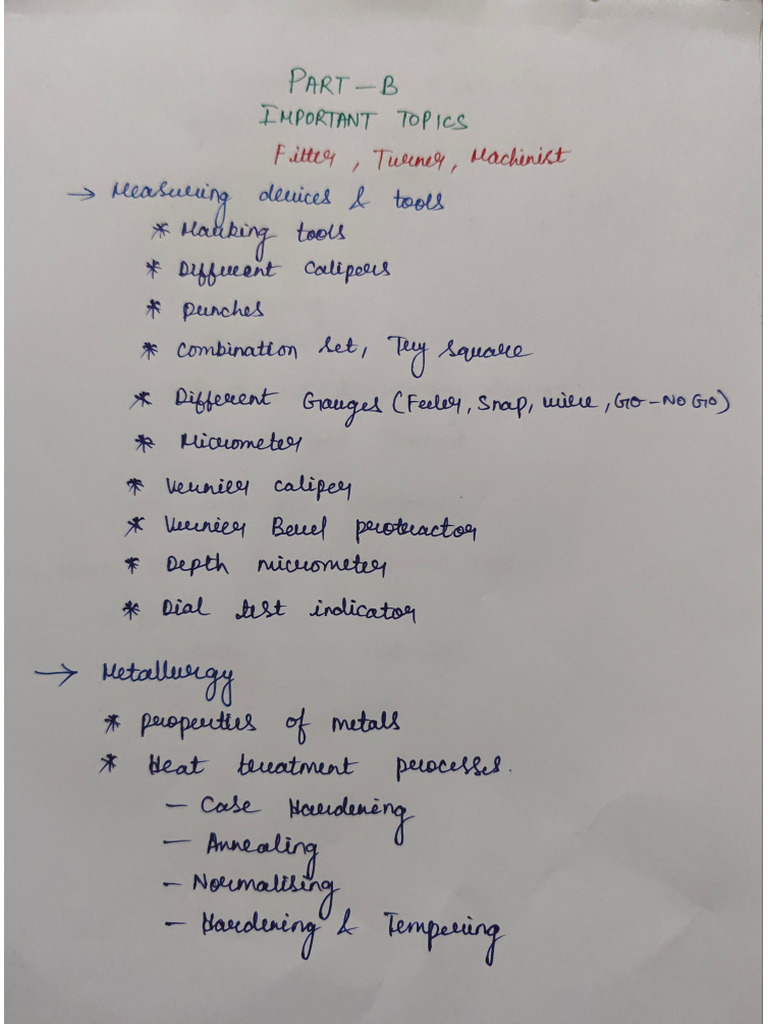 PART-B
IMPORTANT TOPICS
Fitter, Turner, Machinist
→ Measuring devices & tools
* Marking tools
* Different Calipers
* punches
* Combination set, Try square
* Different Gauges (Feeler, Snap, wire, GO-NO GO)
* Micrometer
* Vernier caliper
* Vernier Bevel protractor
* Depth micrometer
* Dial test indicator
→ Metallurgy
* properties of metals
* Heat treatment processes.
- Case Hardening
- Annealing
- Normalising
- Hardening & Tempering